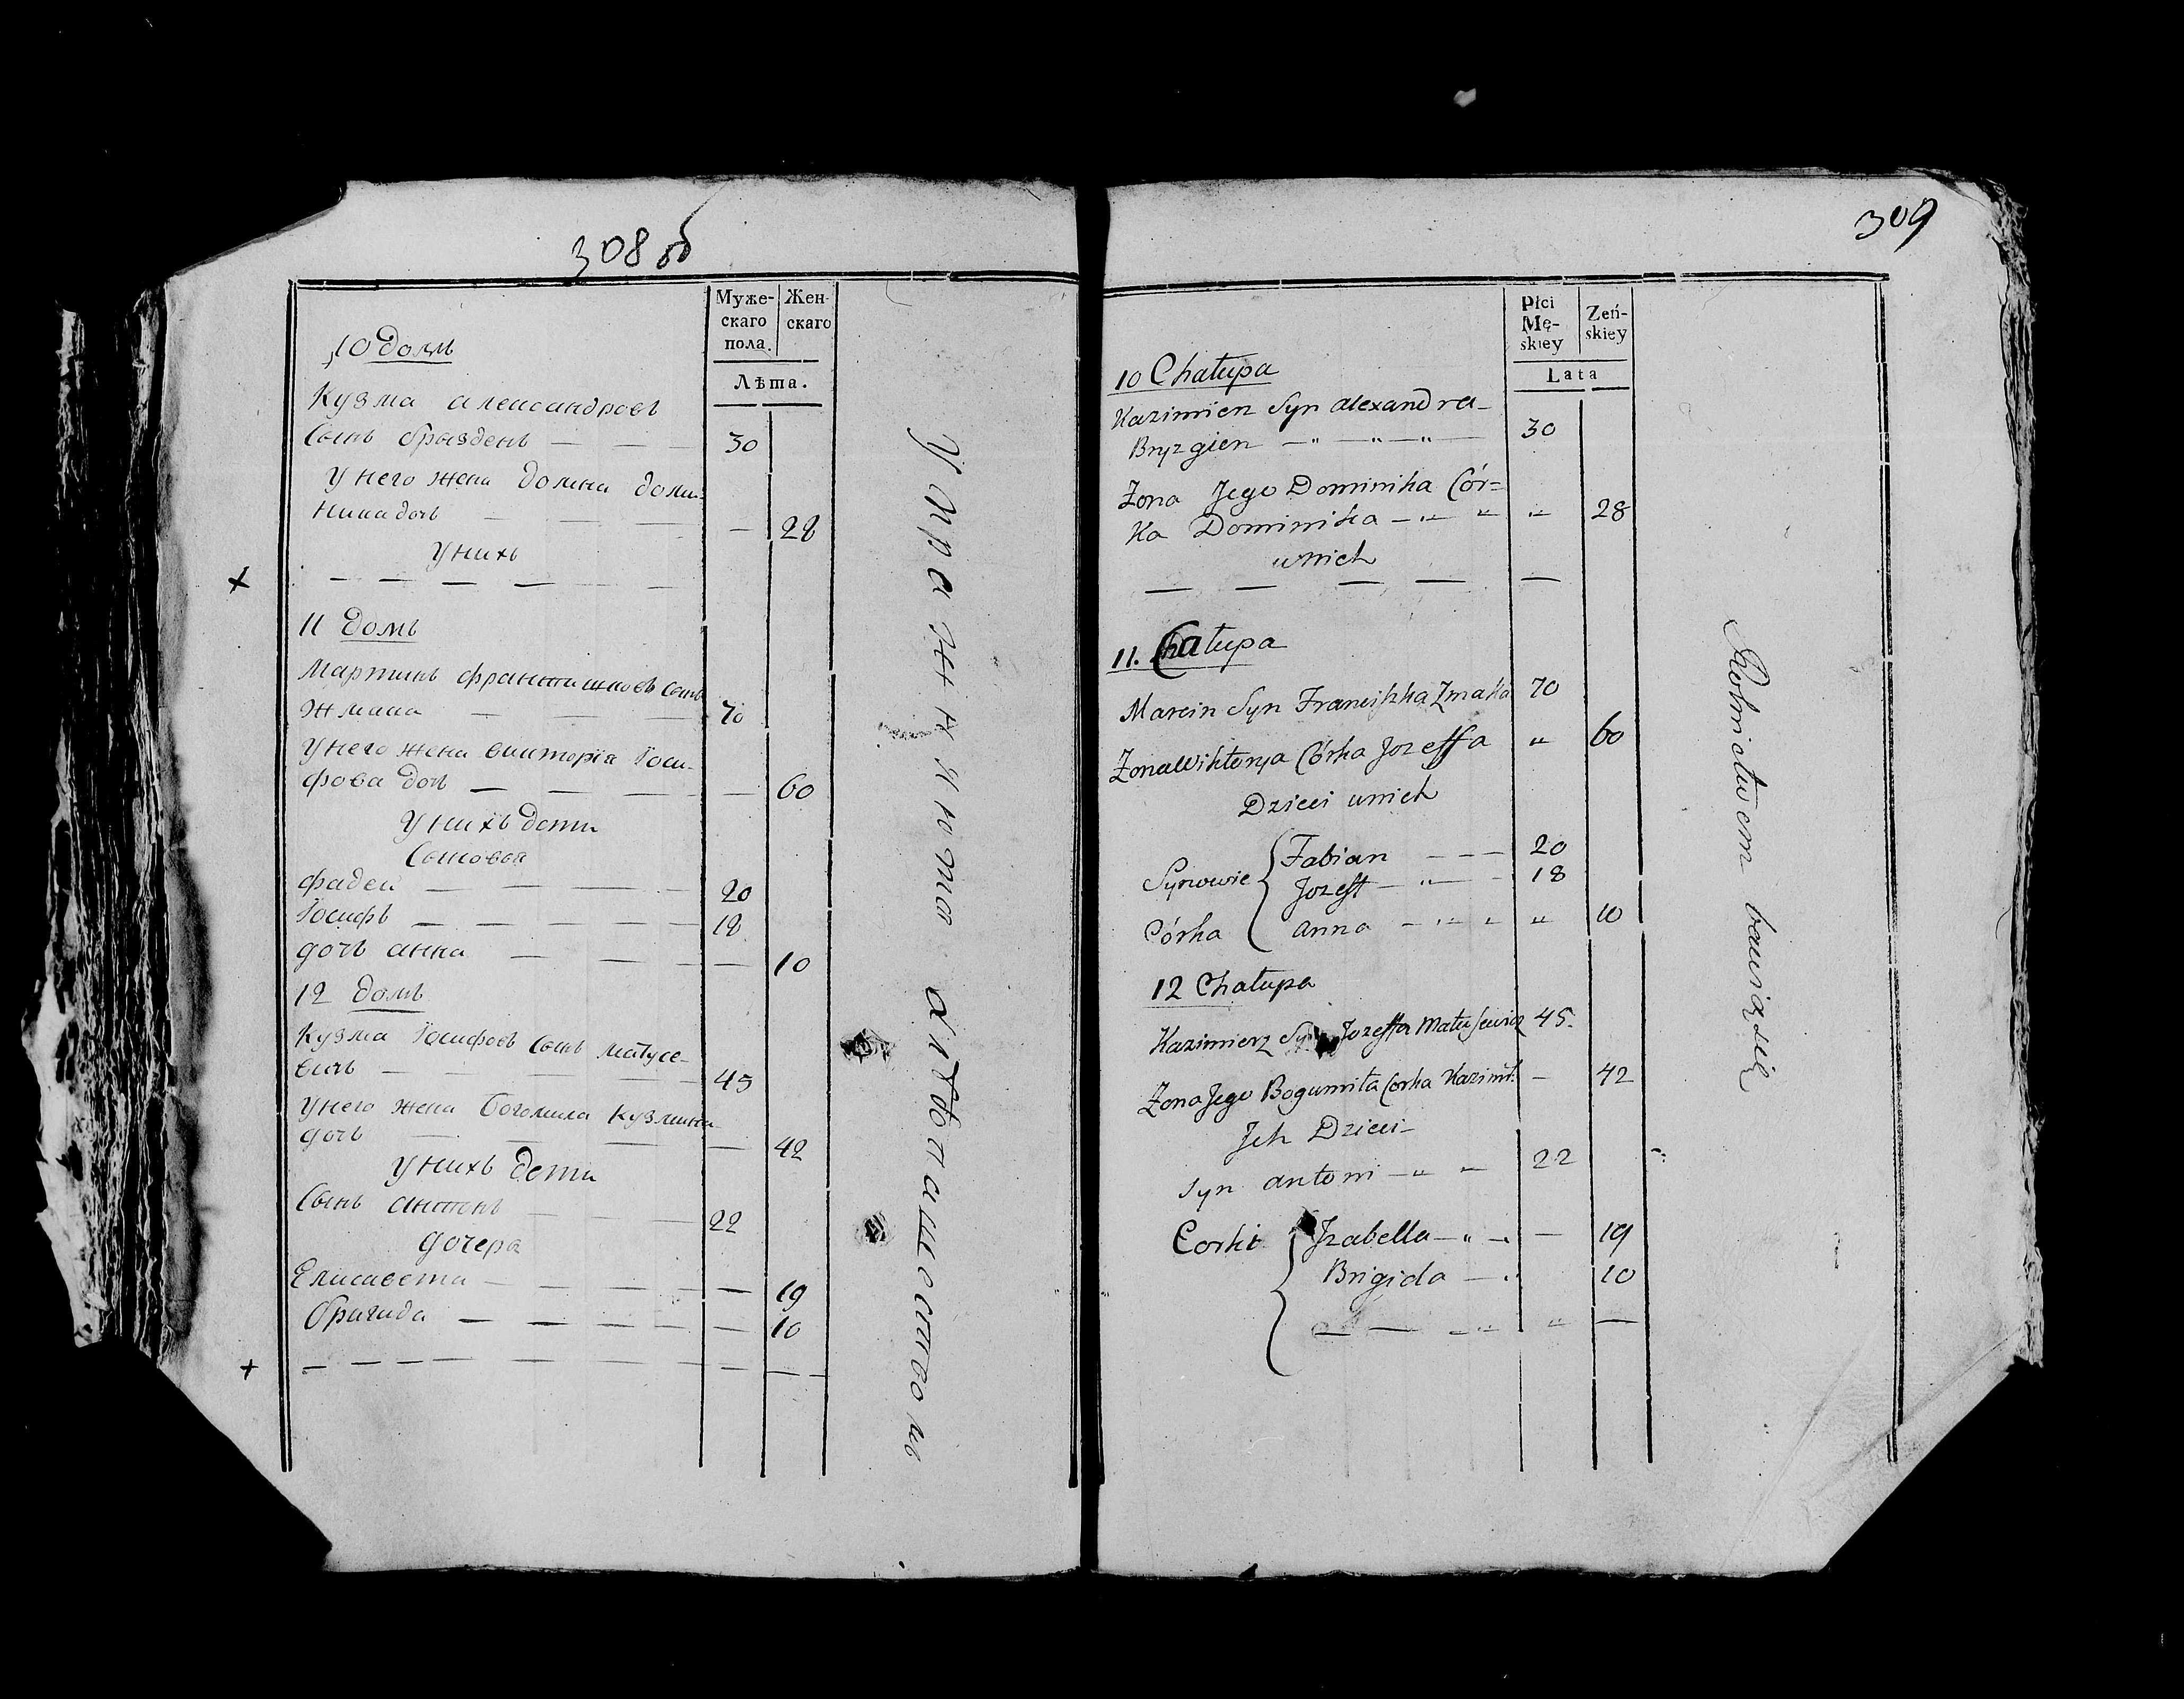 308 об
Муже-
скаго
пола.
Жен-
скаго
Лѣта.
10 домъ
Кузма Александровъ
Сынъ Брызгенъ — — — 30
У него жена Домна Доми-
ника дочь — — — — 28
У нихъ
— — — — —
11 домъ
Мартинъ Франтишковъ Сынъ
Жмака — — — 70
У него жена Викторiя Iоси-
фова дочь — — — — 60
У нихъ дети
Сыновья
Фадей — — — — 20
Iосифъ — — — — 18
дочь Анна — — — — 10
12 домъ
Кузма Iосифовъ Сынъ Матусе-
вичъ — — — — 45
У него жена Богомила Кузмина
дочь — — — — 42
У нихъ дети
Сынъ Антонъ — — 22
дочера
Елисавета — — — — — 19
Бригида — — — — — — 10
— — — — — — — — —
Упражняются хлѣбопашествомъ
309
Płci
Mę-
skiey
Zeń-
skiey
Lata
10 Chałupa
Kazimierz Syn Alexandra
Bryzgien — " — " — " 30
Zona Jego Dominika Cór=
ka Dominika — " " " 28
u nich
— — — — —
11. Chałupa
Marcin Syn Franciszka Zmaka 70
Zona Wiktorya Córka Jozeffa " 60
Dzieci u nich
Synowie { Fabian — — — 20
Jozeff — " — 18
Córka Anna — " " " 10
12 Chałupa
Kazimierz Syn Jozeffa Matusewicz 45.
Zona Jego Bogumiła Corka Kazim: — 42
Jch Dzieci
Syn Antoni — " — 22
Corki { Jzabella — " — — 19
Brigida — " 10
— — — " " —
Rolnictwem bawią się